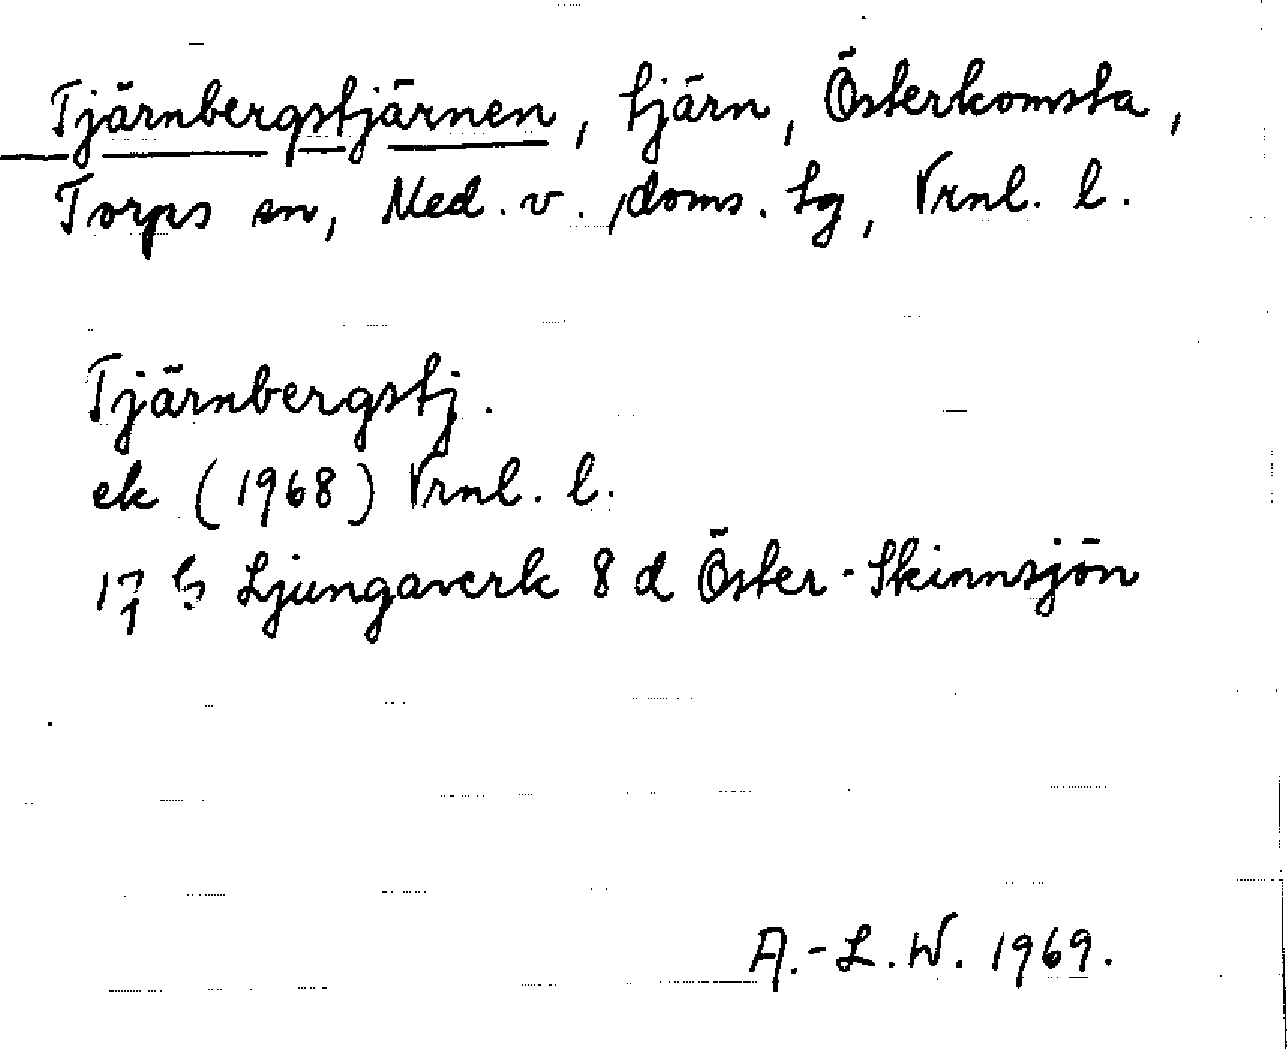 Tjärnbergstjärnen, tjärn, Österkomsta,
Torps sn, Med. v., doms. tg, Vrnl. l.
Tjärnbergstj.
ek (1968) Vrnl. l.
17 G Ljungaverk 8 d Öster-Skinnsjön
A.-L. W. 1969.